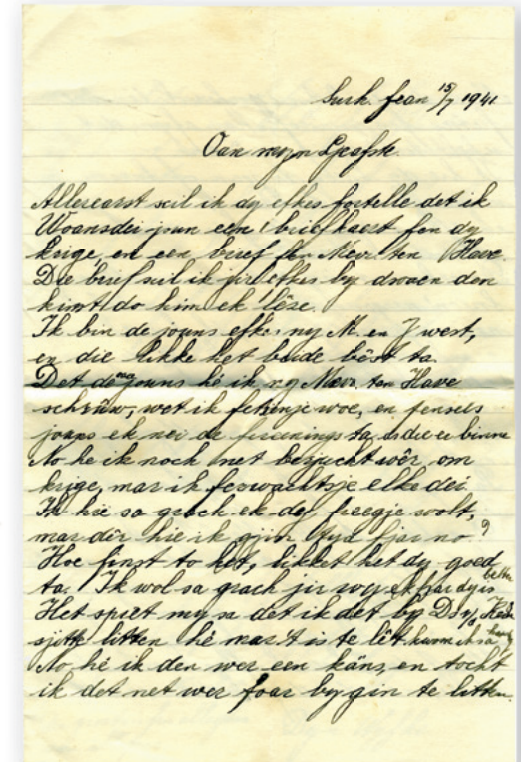 Surh. fean 15/7 1941
Oan myn Leafste.
Allereearst scil ik dy efkes fortelle det ik
Woansdei jun een briefkaert fen dy
krige, en een brief fen Mevr. ten Have
Die brief scil ik jir efkes by dwaen den
kimt do him ek lêze.
Ik bin de jouns efkes ny M. en J west,
en die likke het beide bêst ta.
Det de jouns hè ik ny Mevr. ten Have
schrüw, wet ik fen woe, en
jouns ek nei de ta, is die er binne
No he ik noch net berjucht wêr om
krige, mar ik ferwachtsje elke dei
Ik hie sa grach ek dy freegje wolt,
mar dêr hie ik gjin tyd fjar no
Hoe finst to het, likket het dy goed
ta. Ik wol sa grach jir wy ek fjar dy is
Het spiet my sa det ik det by Ds v/d
litten hè mar 't is te lêt. kwam
No hè ik den wer een kâns, en tocht
ik det net wer foar by gin te litten.